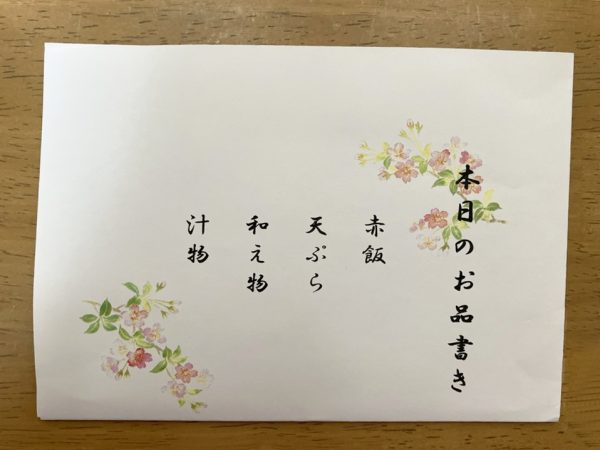 本日のお品書き
赤飯
天ぷら
和え物
汁物